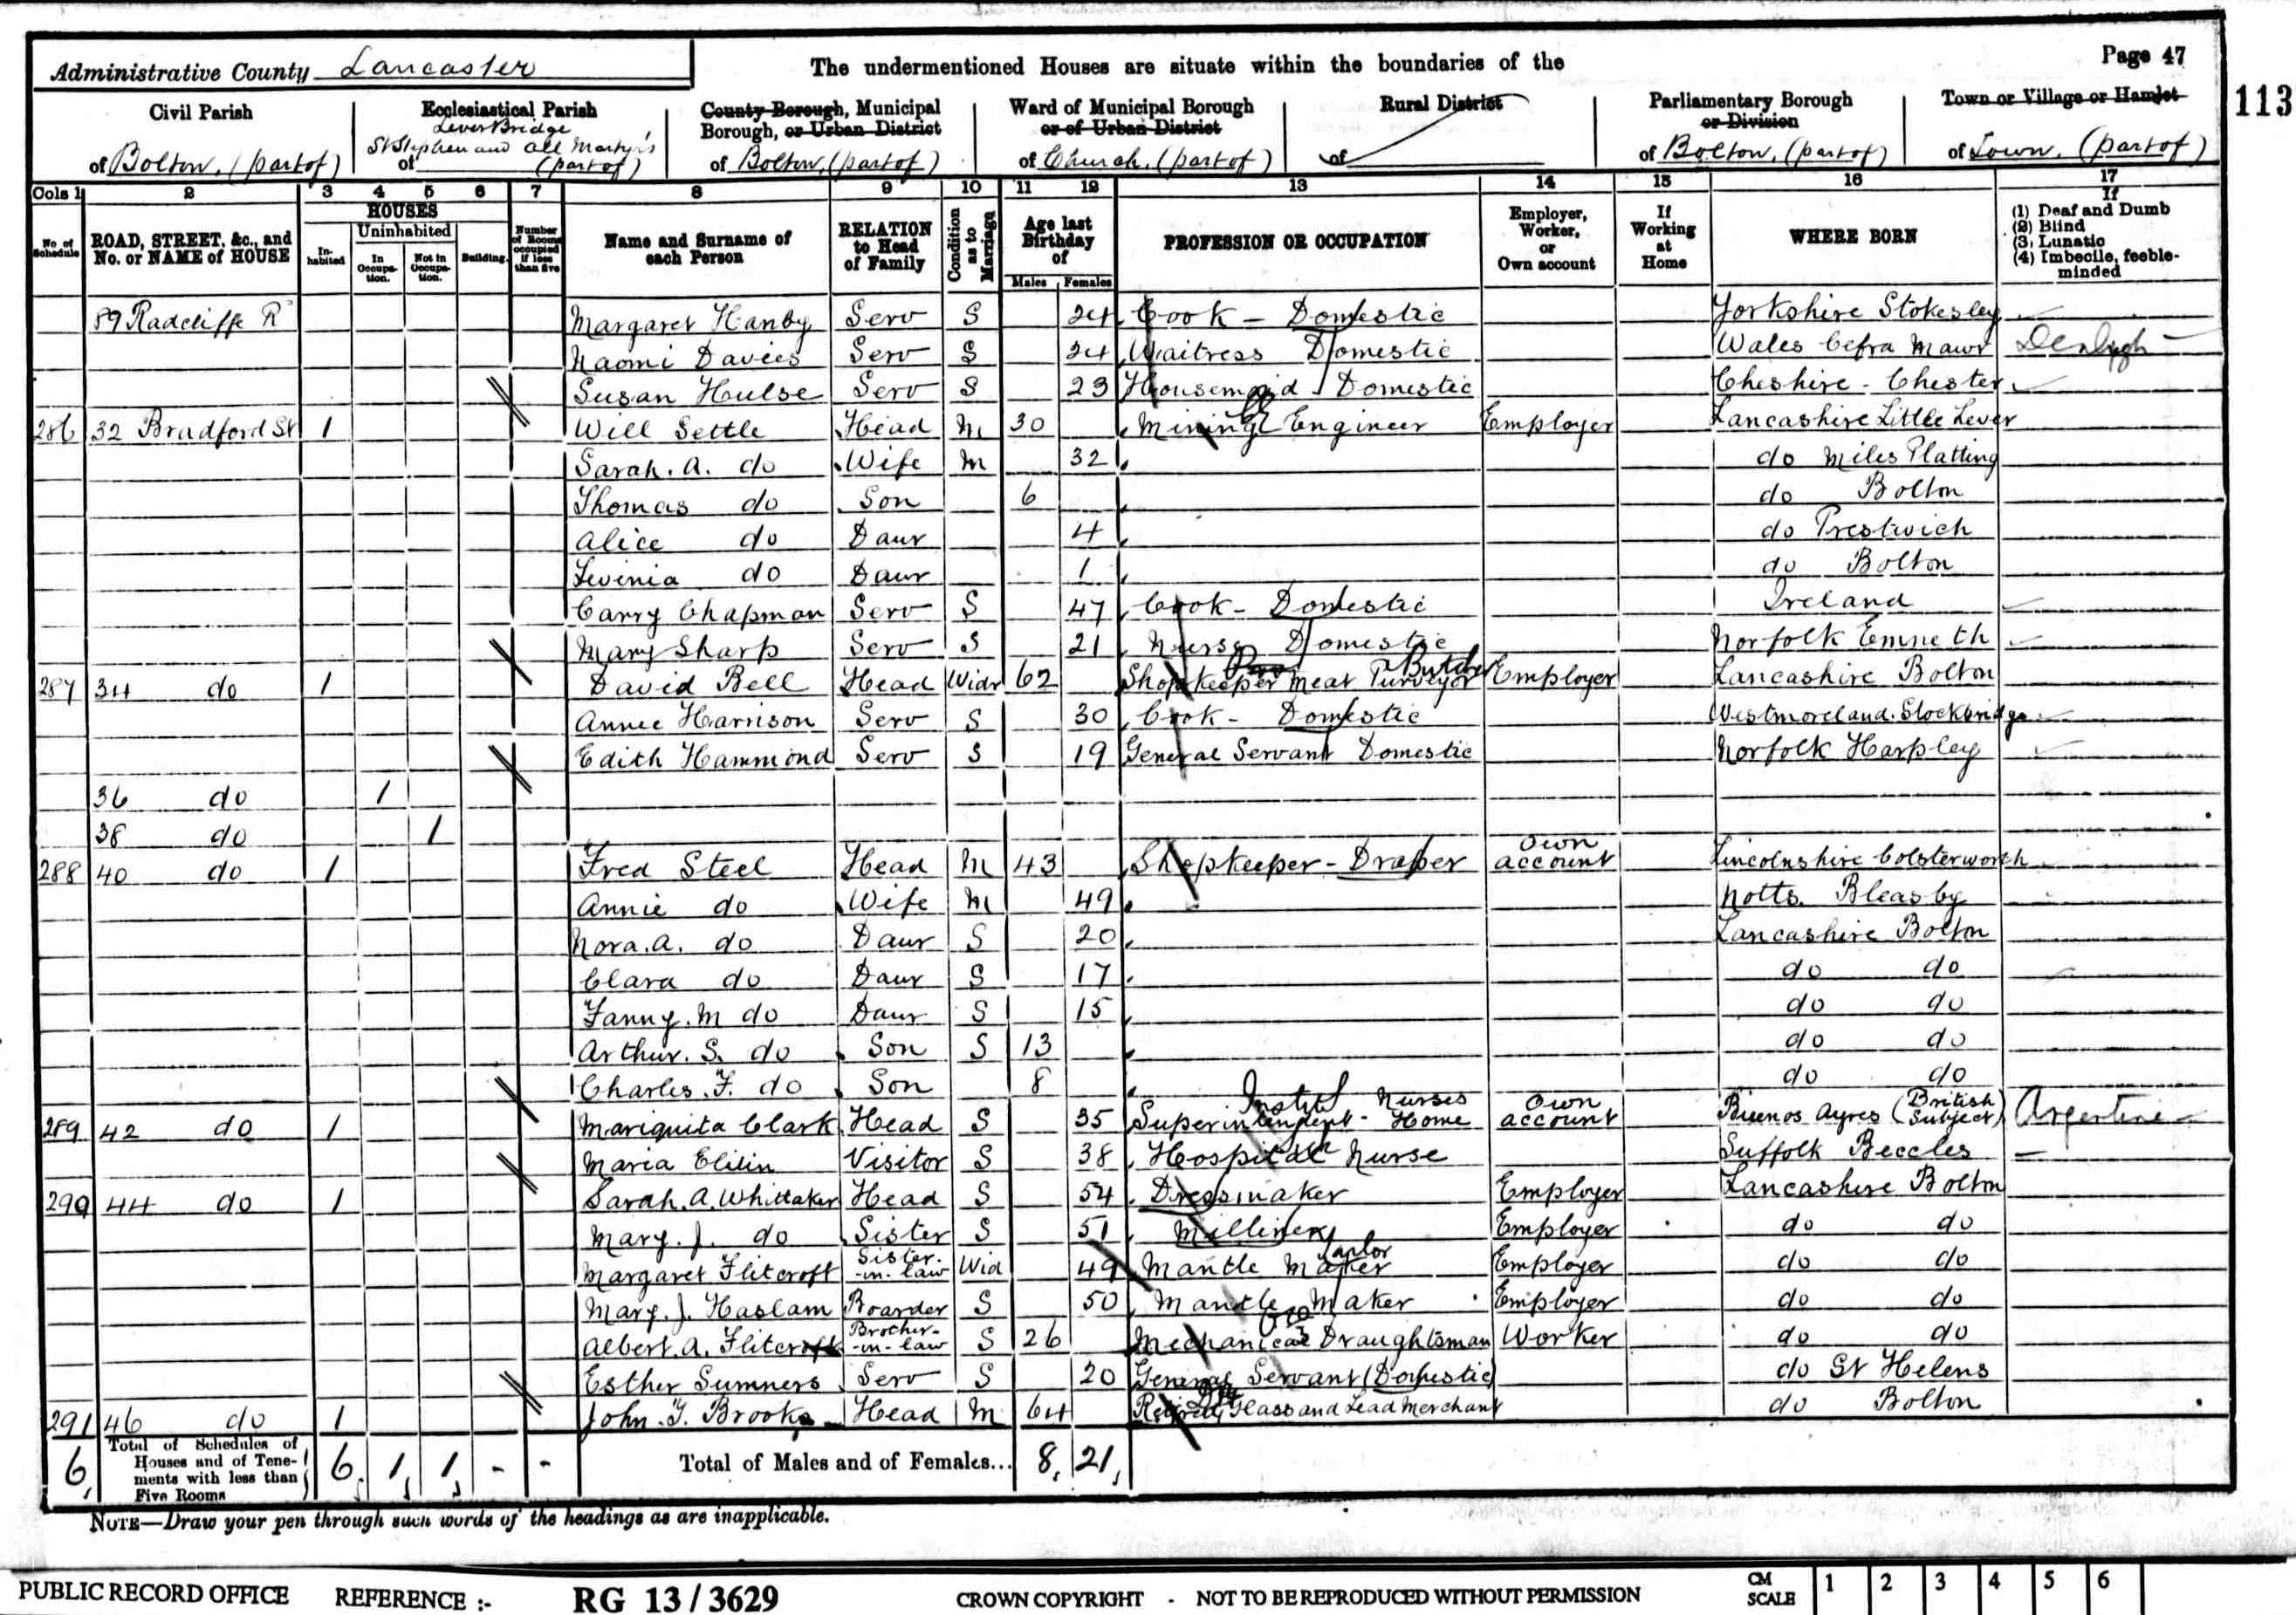 Page 47
Administrative County Lancaster
The undermentioned Houses are situate within the boundaries of the
113
Civil Parish
of Bolton, (part of)
Ecclesiastical Parish
Lever Bridge
St Stephen and All Martyrs
of (part of)
County Borough, Municipal
Borough, or Urban District
of Bolton, (part of)
Ward of Municipal Borough
or of Urban District
of Church, (part of)
Rural District
of
Parliamentary Borough
or Division
of Bolton, (part of)
Town or Village or Hamlet
of Town, (part of)
Cols 1 2 3 4 5 6 7 8 9 10 11 12 13 14 15 16 17
No. of Schedule
ROAD, STREET, &c., and
No. or NAME of HOUSE
HOUSES
Inhabited
Uninhabited
In Occupation.
Not in Occupation.
Building.
Number of Rooms occupied if less than five
Name and Surname of
each Person
RELATION
to Head
of Family
Condition as to Marriage
Age last
Birthday
of
Males Females
PROFESSION OR OCCUPATION
Employer,
Worker,
or
Own account
If
Working
at
Home
WHERE BORN
If
(1) Deaf and Dumb
(2) Blind
(3) Lunatic
(4) Imbecile, feeble-
minded
89 Radcliffe R Margaret Hanby Serv S 24 Cook - Domestic Yorkshire Stokesley
Naomi Davies Serv S 24 Waitress Domestic Wales Cefra Mawr Denbigh
Susan Hulse Serv S 23 Housemaid Domestic Cheshire - Chester
286 32 Bradford St 1 Will Settle Head M 30 Mining Engineer Employer Lancashire Little Lever
Sarah. A. do Wife M 32 do Miles Platting
Thomas do Son 6 do Bolton
Alice do Daur 4 do Prestwich
Levinia do Daur 1 do Bolton
Carry Chapman Serv S 47 Cook - Domestic Ireland
Mary Sharp Serv S 21 Nurse Domestic Norfolk Emneth
287 34 do 1 David Bell Head Widr 62 Shopkeeper Meat Purveyor Butcher Employer Lancashire Bolton
Annie Harrison Serv S 30 Cook - Domestic Westmoreland. Stockbridge
Edith Hammond Serv S 19 General Servant Domestic Norfolk Harpley
36 do 1
38 do 1
288 40 do 1 Fred Steel Head M 43 Shopkeeper - Draper Own account Lincolnshire Colsterworth
Annie do Wife M 49 Notts. Bleasby
Nora. A. do Daur S 20 Lancashire Bolton
Clara do Daur S 17 do do
Fanny. M do Daur S 15 do do
Arthur. S. do Son S 13 do do
Charles. F. do Son 8 do do
289 42 do 1 Mariquita Clark Head S 35 Superintendent - Nurses Home Instit Own account Buenos Ayres (British Subject) Argentine
Maria Elilin Visitor S 38 Hospital Nurse Suffolk Beccles
290 44 do 1 Sarah. A. Whittaker Head S 54 Dressmaker Employer Lancashire Bolton
Mary. J. do Sister S 51 Milliner Employer do do
Margaret Flitcroft Sister-in-law Wid 49 Mantle Maker Tailor Employer do do
Mary. J. Haslam Boarder S 50 Mantle Maker Employer do do
Albert. A. Flitcroft Brother-in-law S 26 Mechanical Draughtsman Worker do do
Esther Sumners Serv S 20 General Servant (Domestic) do St Helens
291 46 do 1 John. T. Brooks Head M 64 Retired Glass and Lead Merchant do Bolton
6 Total of Schedules of Houses and of Tenements with less than Five Rooms 6 1 1 - - Total of Males and of Females... 8 21
NOTE—Draw your pen through such words of the headings as are inapplicable.
PUBLIC RECORD OFFICE REFERENCE :- RG 13 / 3629 CROWN COPYRIGHT - NOT TO BE REPRODUCED WITHOUT PERMISSION CM SCALE 1 2 3 4 5 6